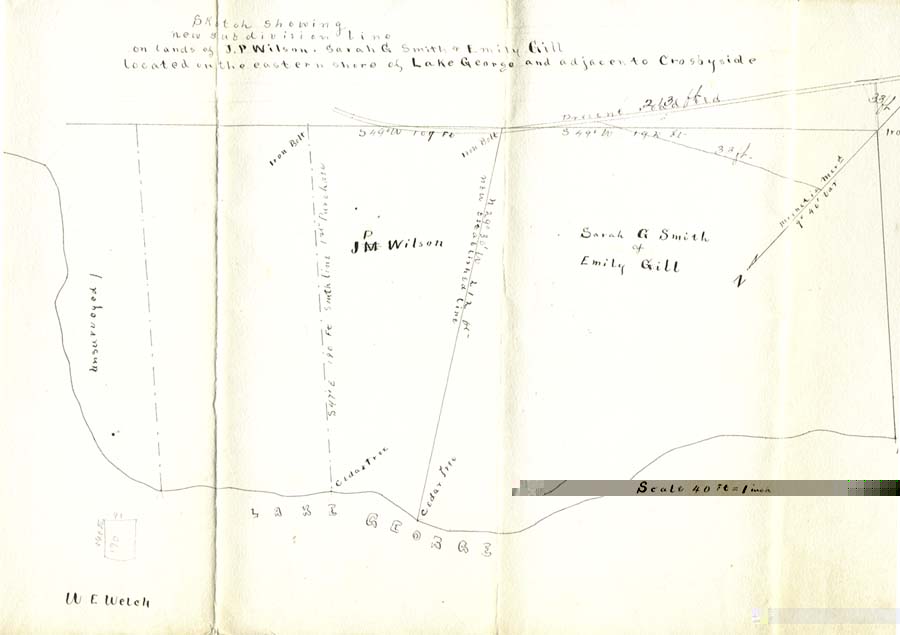 Sketch showing
new subdivision line
on lands of J.P Wilson. Sarah G Smith & Emily Gill
located on the eastern shore of Lake George and adjacent to Crosbyside
Present
33 ft
S 49° W 107 Ft
S 49° W 192 Ft
Iron Bolt
Iron Bolt
Iron
33 ft.
7° 40'
N
P
J M Wilson
Sarah G Smith
of
Emily Gill
New established line
212 ft
S 47° E 190 Ft Smith line 1st Purchase
Unsurveyed
Cedar Tree
Cedar Tree
LAKE GEORGE
Scale 40 ft = 1 inch
W E Welch